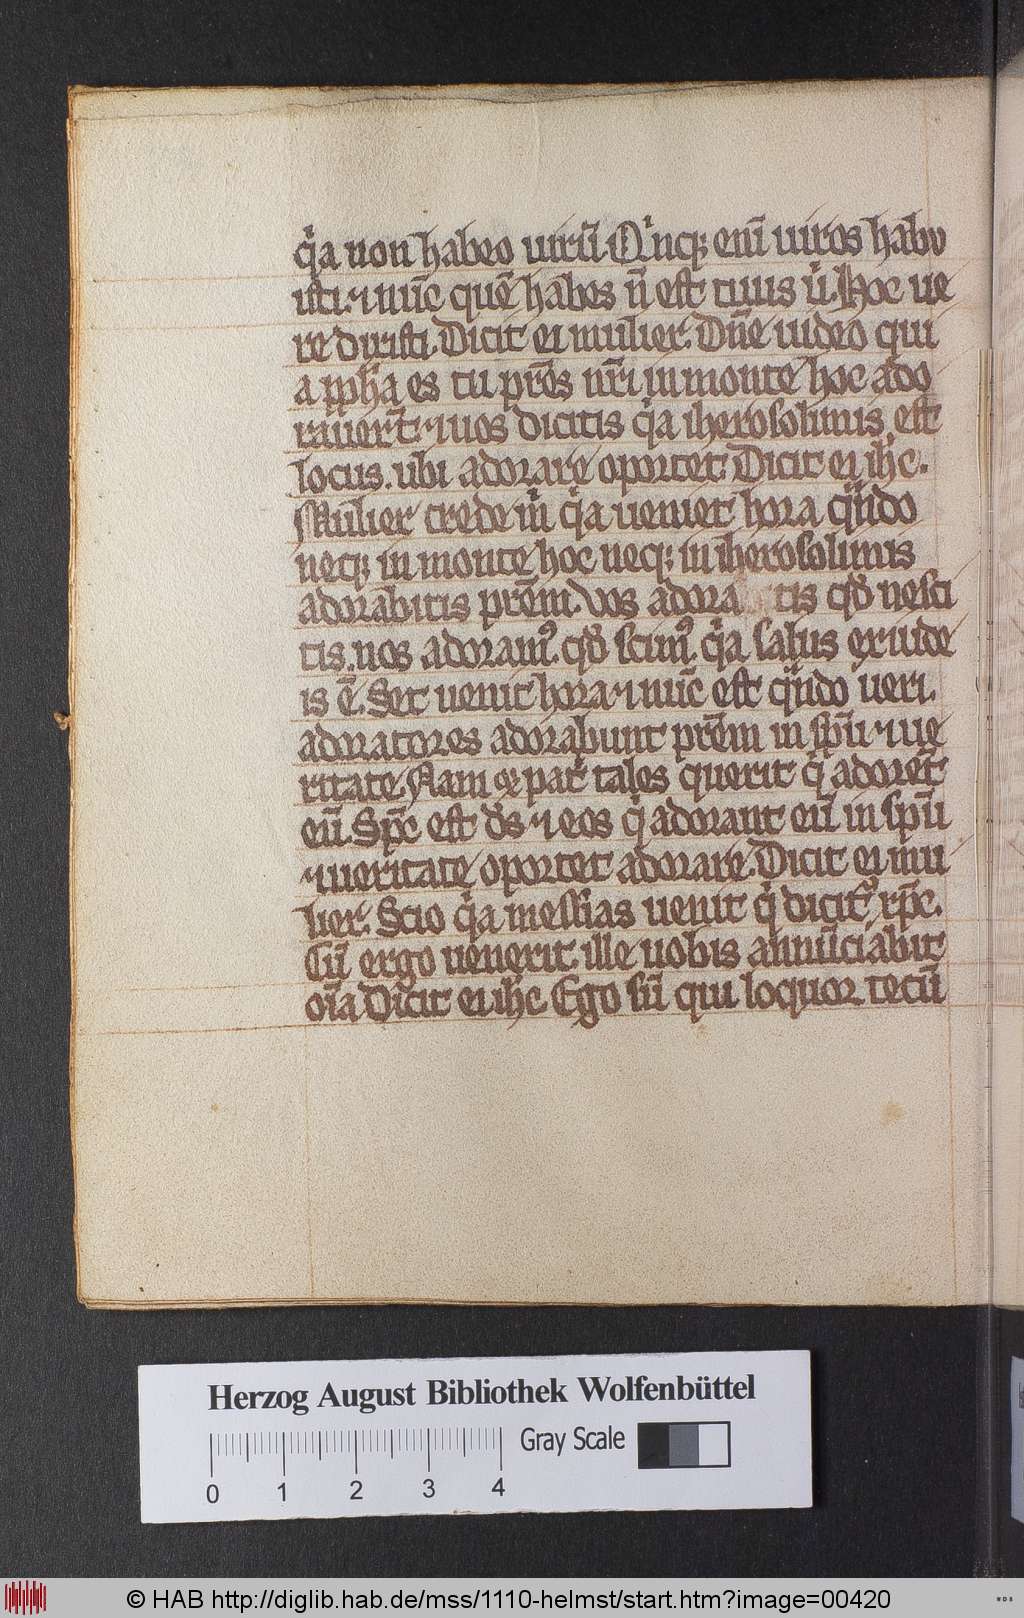 qͥa non habeo uirū. Qͥnqꝫ enī uiros habu
isti. ⁊ nūc quē habes n̄ est tuus uͥ. Hoc ue
re dixisti. Dicit ei mulier. Dn̄e uideo qui
a ꝓph̄a es tu. pr̄es nr̄i in monte hoc ado
rauer̄t. ⁊ uos dicitis qͥa iherosolimis est
locus. ubi adorare oportet. Dicit ei ih̄c.
Mulier crede mͥ qͥa ueniet hora qn̄do
neqꝫ in monte hoc neqꝫ in iherosolimis
adorabitis pr̄em. Vos adora tis qd̄ nesci
tis. nos adoramꝰ. qd̄ scimꝰ. qͥa salus ex iude
is ē. Set uenit hora ⁊ nūc est qn̄do ueri
adoratores adorabunt pr̄em in sp̄u ⁊ ue
ritate. Nam ⁊ pat̄ tales querit qͥ adorēt
eū. Sp̄c est ds̄ ⁊ eos qͥ adorant eū in sp̄u
⁊ ueritate oportet adorare. Dicit ei mu
lier. Scio qͥa messias uenit qͥ dicit᷑ xp̄c.
Cū ergo uenerit ille nobis annūciabit
oīa Dicit ei ih̄c Ego sū qui loquor tecū
Herzog August Bibliothek Wolfenbüttel
Gray Scale
0 1 2 3 4
© HAB http://diglib.hab.de/mss/1110-helmst/start.htm?image=00420